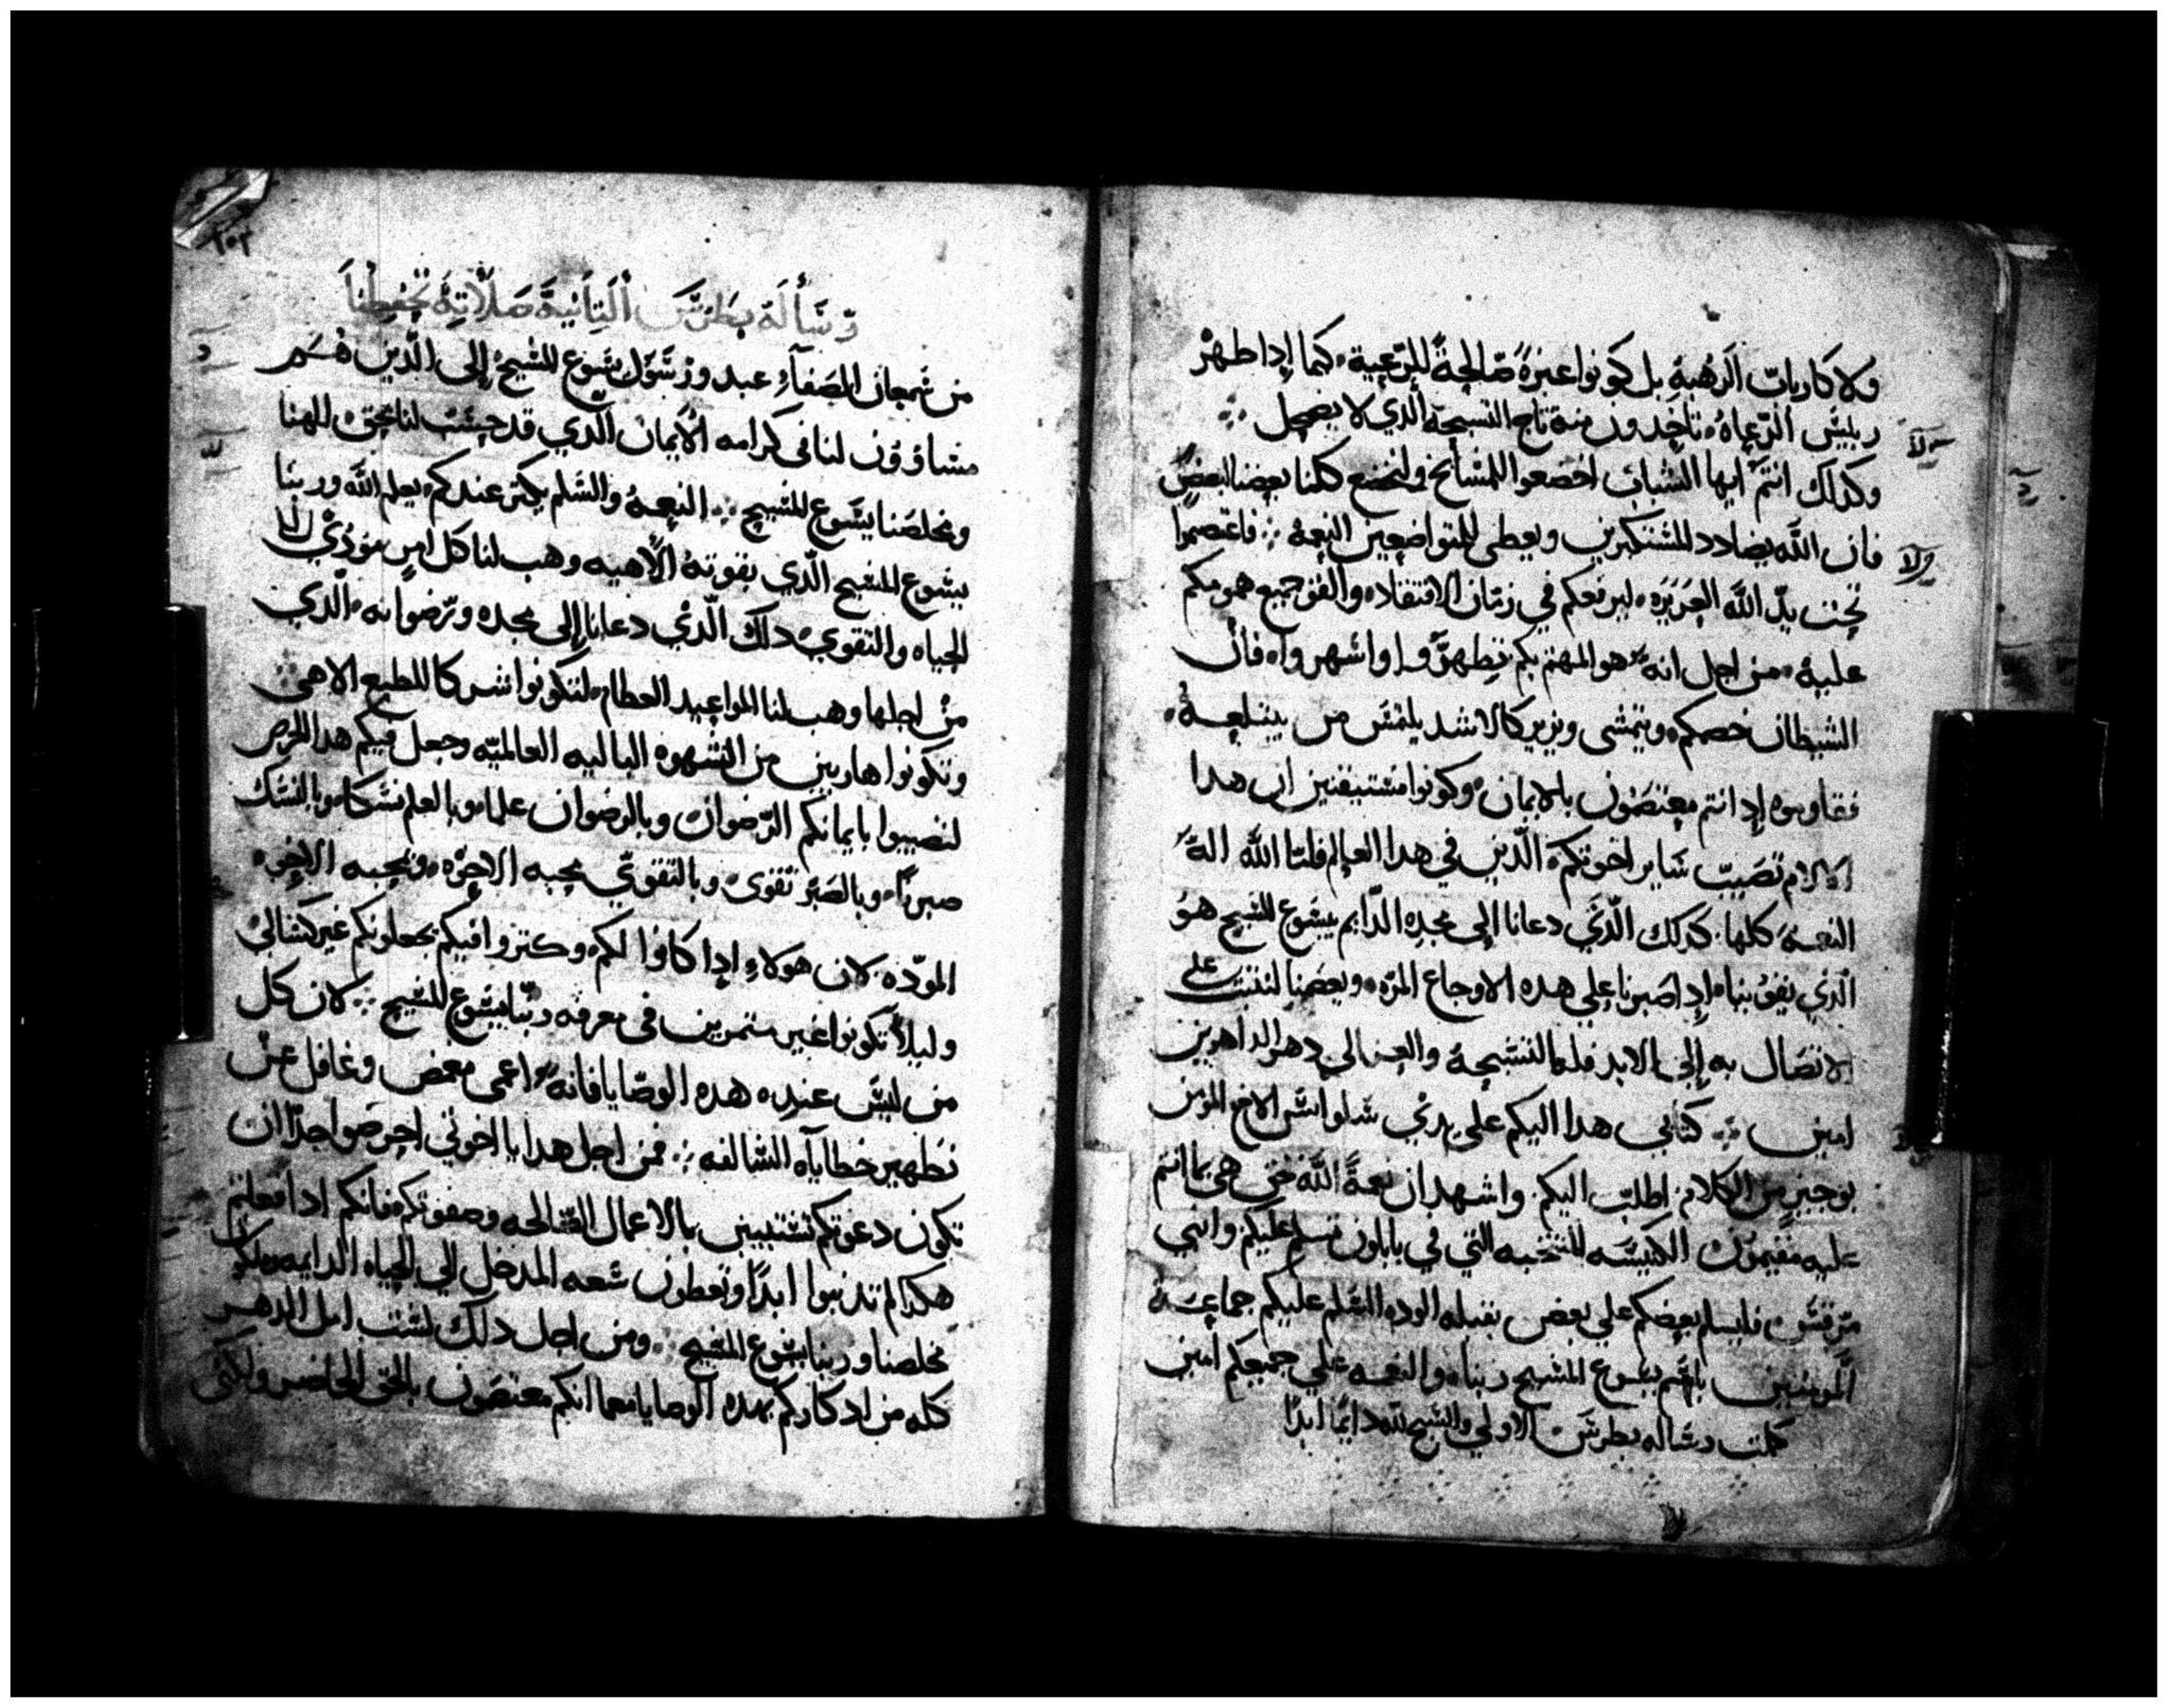 ولا كارباب الرهبة بل كونوا عبرة صالحة للرعية كما إدا ظهر
رييس الرعاة تاخدون منه تاج التسبحة الدي لا يضمحل
وكدلك انتم ايها الشباب اخضعوا للمشايخ ولنخضع كلنا بعضنا لبعض
فان الله يضادد المستكبرين ويعطي المتواضعين النعمة فاعتصموا
تحت يد الله العزيزه ليرفعكم في زمان الافتقاد والقو جميع همومكم
عليه من اجل انه هو المهتم بكم تطهروا واشهروا فان
الشيطان خصمكم ويتمشى ويزير كالاسد يلتمس من يبتلعه
فقاوموه إدا انتم معتصمون بالايمان وكونوا مستيقنين ان هدا
الالام تصيب ساير اخوتكم الدين في هدا العالم فلنا الله اله
النعمة كلها كدلك الدي دعانا الى مجده الدايم بيسوع المسيح هو
الدي يقوينا إدا صبرنا على هده الاوجاع المره ويعضنا لنثبت على
الاتصال به إلى الابد فله التسبحة والعز الي دهر الداهرين
امين كتابي هدا اليكم على يدي سلوانس الاخ المومن
بوجيز من الكلام اطلب اليكم واشهد ان نعمة الله حق هي بما انتم
عليه مقيمون الكنيسه المنتخبه التي في بابلون تسلم عليكم وابني
مرقس فليسلم بعضكم علي بعض بقبله الوده السلم عليكم جماعة
المومنين باسم يسوع المسيح ربنا والنعمه علي جميعكم امين
كملت رساله بطرس الاولي والسبح لله دايما ابدا
١٠٢
رسالة بطرس الثانية صلاته تحفظنا
من شمعان الصفاء عبد ورسول يسوع المسيح إلى الدين هم
متساوون لنا فى كرامه الايمان الدي قد حسبت لنا بحق الهنا
ومخلصنا يسوع المسيح النعمة والسلم يكثر عندكم بعلم الله وربنا
يسوع المسيح الدي بقوته الالاهيه وهب لنا كل امر مودي الى
الحياه والتقوى دلك الدي دعانا إلى مجده ورضوانه الدي
من اجلها وهب لنا المواعيد العظام لتكونوا شركا للطبع الالاهي
وتكونوا هاربين من الشهوه الباليه العالميه وجعل فيكم هدا الحرص
لتصيبوا بايمانكم الرضوان وبالرضوان علما وبالعلم نسكا وبالنسك
صبرا وبالصبر تقوى وبالتقوي محبه الاخوه وبمحبه الاخوه
الموده لان هولاء إدا كانوا لكم وكثروا فيكم يجعلونكم غير كسالى
وليلا تكونوا غير مثمرين في معرفه ربنا يسوع المسيح لان كل
من ليس عنده هده الوصايا فانه اعمى مغمض وغافل عن
تطهير خطاياه السالفه فمن اجل هدا يا اخوتي احرصوا جدا ان
تكون دعوتكم تستبين بالاعمال الصالحه وصفوتكم فانكم ادا فعلتم
هكدا لم تدنبوا ابدا وتعطون سعه المدخل الي الحياه الدايمه ملكوت
مخلصنا وربنا يسوع المسيح ومن اجل دلك لست امل الدهر
كله من ادكاركم بهده الوصايا مع انكم معتصمون بالحق الحاضر ولكني